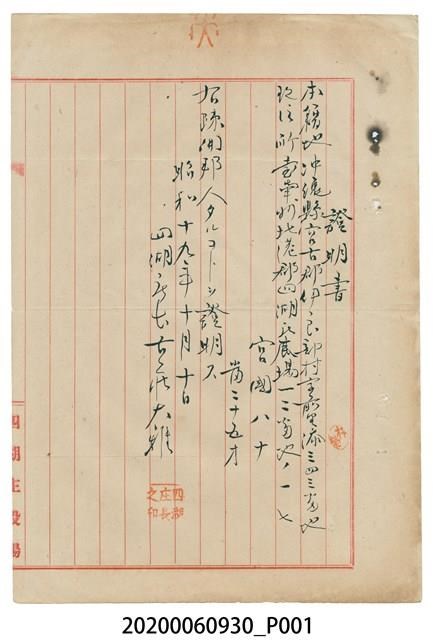 證明書
本籍地沖繩縣宮古郡伊良部村字前里添三四三番地
現住所臺南州北港郡四湖庄鹿場一二番地ノ一七
宮國八十
當二十五才
右疎開邦人タルコトヲ證明ス
昭和十九年十月十日
四湖庄長古庄大雅
四湖
庄長
之印
四湖庄役場
20200060930_P001